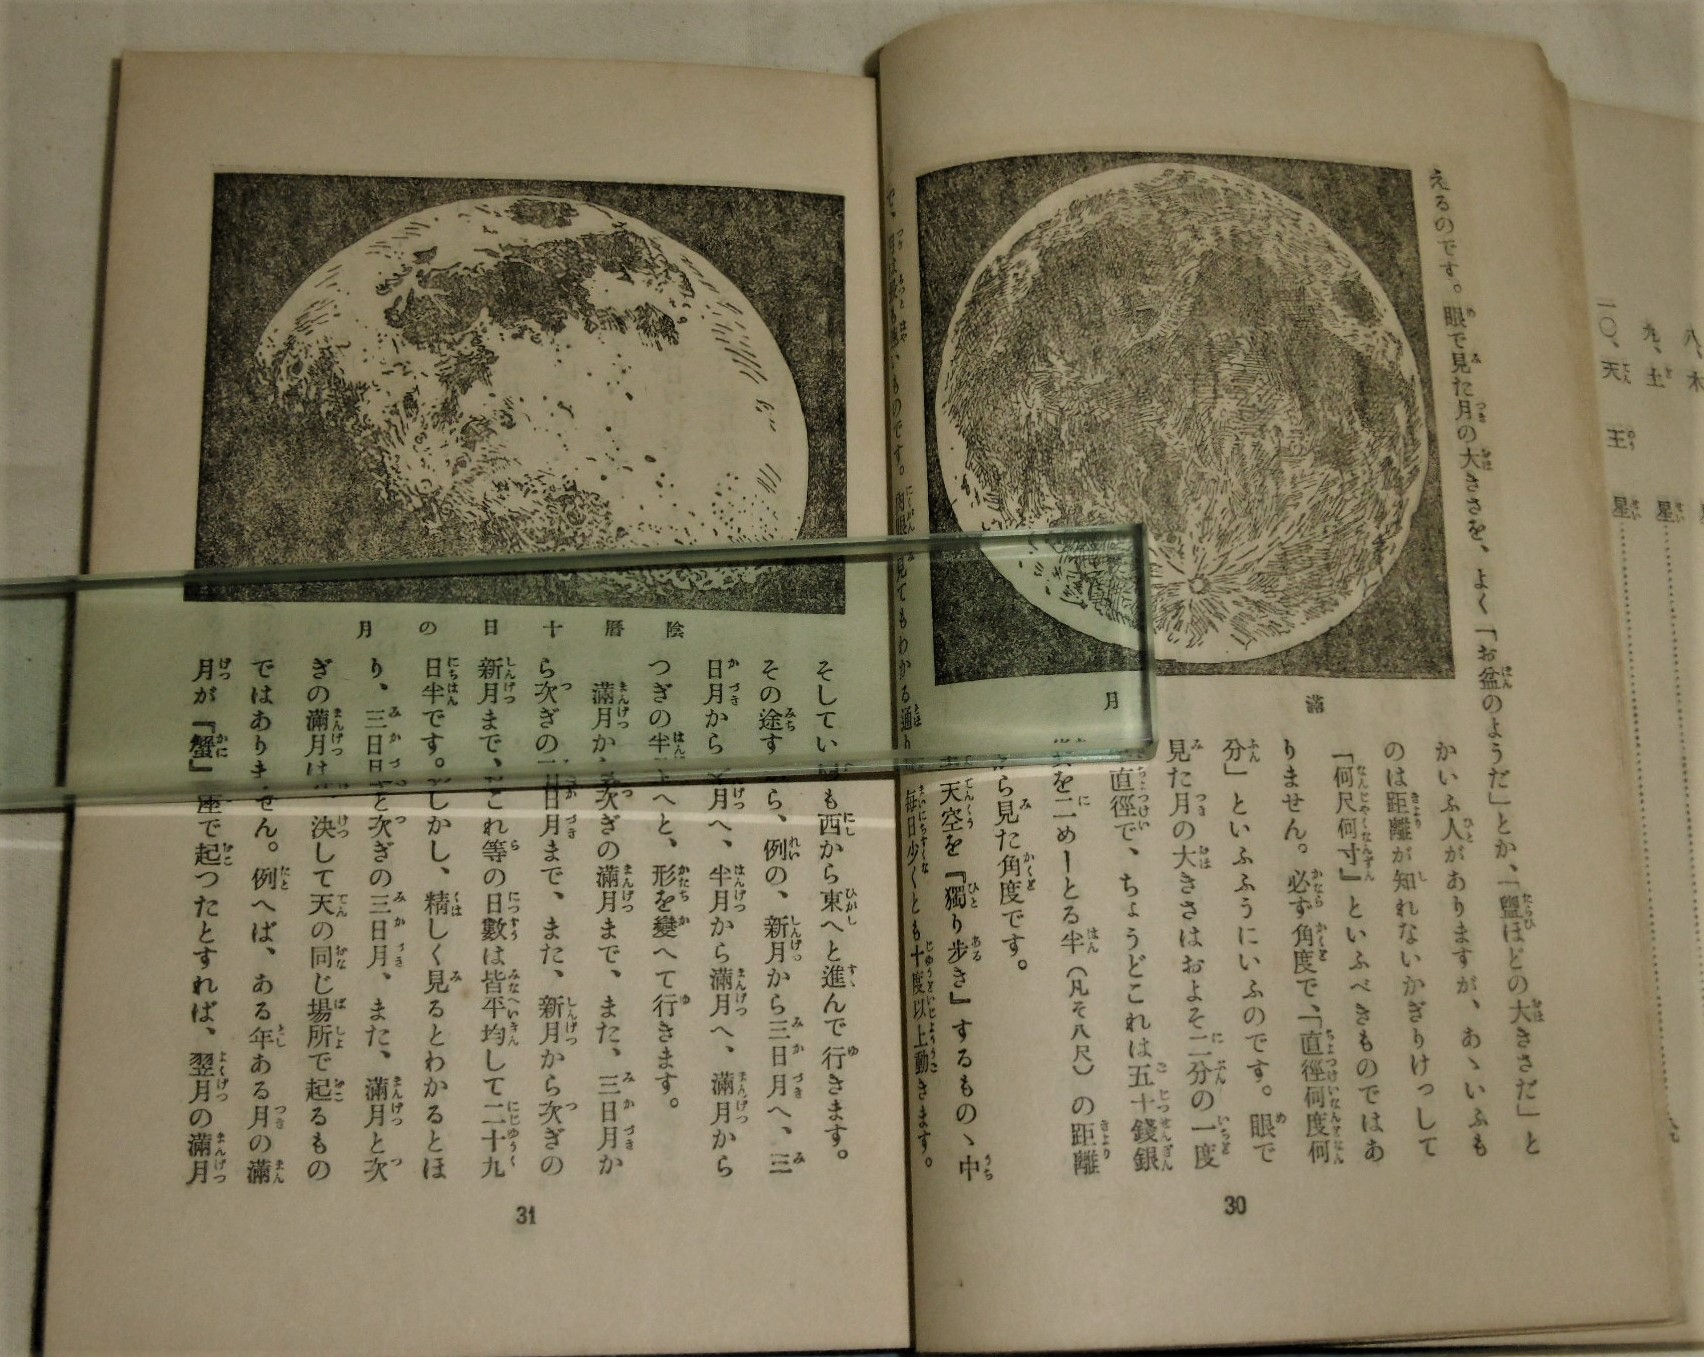 えるのです。眼で見た月の大きさを、よく「お盆のようだ」とか、「盥ほどの大きさだ」と
かいふ人がありますが、あゝいふも
のは距離が知れないかぎりけっして
「何尺何寸』といふべきものではあ
りません。必ず角度で、「直徑何度何
分」といふふうにいふのです。眼で
見た月の大きさはおよそ二分の一度
直徑で、ちょうどこれは五十錢銀
を二めーとる半（凡そ八尺）の距離
から見た角度です。
天空を『獨り歩き』するものゝ中
で、ものです。肉眼で見てもわかる通り毎日少くとも十度以上動きます。
滿月
30
陰曆十日の月
そしていも西から東へと進んで行きます。
その途すら、例の、新月から三日月へ、三
日月から月へ、半月から滿月へ、滿月から
つぎの半へと、形を變へて行きます。
滿月か次ぎの滿月まで、また、三日月か
ら次ぎの三日月まで、また、新月から次ぎの
新月まで、これ等の日數は皆平均して二十九
日半です。しかし、精しく見るとわかるとほ
り、三日月と次ぎの三日月、また、滿月と次
ぎの滿月は決して天の同じ場所で起るもの
ではありません。例へば、ある年ある月の滿
月が『蟹』座で起つたとすれば、翌月の滿月
31
八、木
九、土星
一〇、天王星